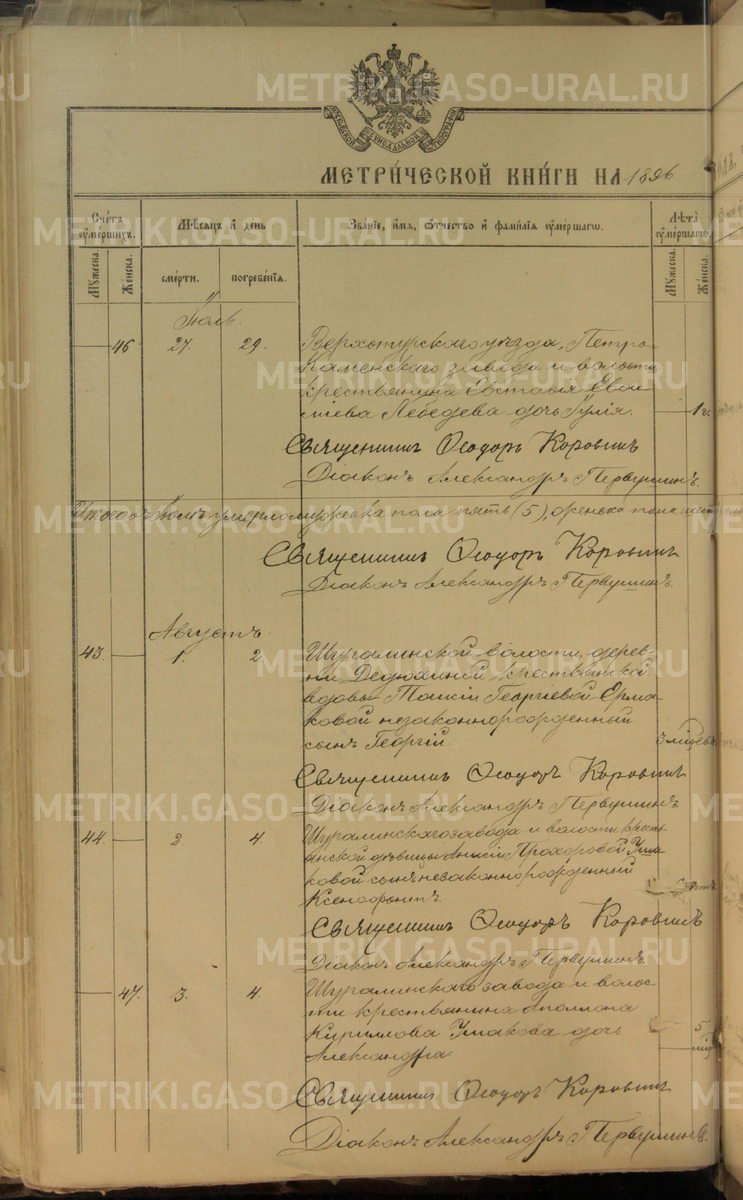 МЕТРИЧЕСКОЙ КНИГИ НА 1896
Счетъ умершихъ.
Мѣсяцъ и день
Званіе, имя, отчество и фамилія умершаго.
Лѣта умершаго.
Мужеска.
Женска.
смерти.
погребенія.
Мужеска.
Женска.
Іюль.
46 27. 29. Верхотурскаго уѣзда, Петро
Каменскаго завода и волости
крестьянина Евставья
Лебедева дочь Іулія. 1 г.
Священникъ Ѳеодоръ Коровинъ
Діаконъ Александръ Первушинъ.
Итого въ Іюлѣ умерло мужеска пола пять (5), женска пола
Священникъ Ѳеодоръ Коровинъ
Діаконъ Александръ Первушинъ.
Августъ.
43. 1. 2 Шуралинской волости дерев-
ни Дедюхиной крестьянской
вдовы Таисіи Георгіевой Ерма
ковой незаконнорожденный
сынъ Георгій. 3 мѣсяц
Священникъ Ѳеодоръ Коровинъ
Діаконъ Александръ Первушинъ
44. 2 4. Шуралинскаго завода и волости кресть
янской дѣвицы Анисіи Прохоровой Уша
ковой сынъ незаконнорожденный
Ксенофонтъ.
Священникъ Ѳеодоръ Коровинъ
Діаконъ Александръ Первушинъ
47. 3. 4. Шуралинскаго завода и волос
ти крестьянина Аполлона
Кириллова Ушакова дочь
Александра. 5
Священникъ Ѳеодоръ Коровинъ
Діаконъ Александръ Первушинъ.
METRIKI.GASO-URAL.RU